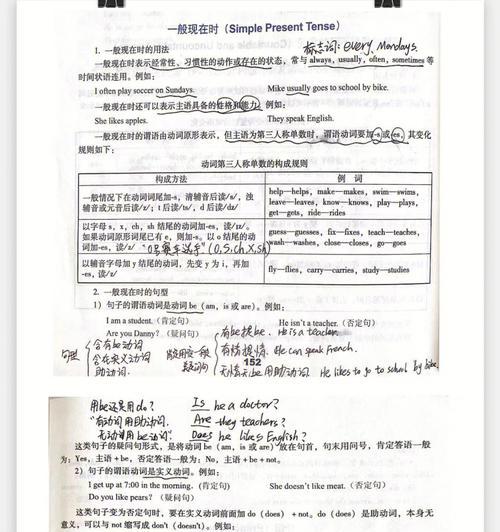 一般现在时（Simple Present Tense）
1. 一般现在时的用法 标志词: every, Mondays.
一般现在时表示经常性、习惯性的动作或存在的状态，常与 always，usually，often，sometimes 等
时间状语连用。例如：
I often play soccer on Sundays. Mike usually goes to school by bike.
一般现在时还可以表示主语具备的性格和能力。例如：
She likes apples. They speak English.
一般现在时的谓语由动词原形表示，但主语为第三人称单数时，谓语动词要加-s或-es，其变化
规则如下：
动词第三人称单数的构成规则
构成方法 例 词
一般情况下在动词词尾加-s，清辅音后读/s/，浊
辅音或元音后读/z/；t 后读/ts/，d 后读/dz/
help—helps, make—makes, swim—swims,
leave—leaves, know—knows, play—plays,
get—gets, ride—rides
以字母 s，x，ch，sh 结尾的动词加-es，读/ɪz/。
如果动词原形词尾已有 e，则加-s。以 o 结尾的动
词加-es，读/z/ (O,S,ch,X,sh)
guess—guesses, fix—fixes, teach—teaches,
wash—washes, close—closes, go—goes
以辅音字母加 y 结尾的动词，先变 y 为 i，再加
-es，读/z/
fly—flies, carry—carries, study—studies
2. 一般现在时的句型
1）句子的谓语动词是动词 be（am, is 或 are）。例如：
I am a student.（肯定句） He isn't a teacher.（否定句）
Are you Danny?（疑问句） 有be提be. He is a teacher.
句型 含有be动词
含在实义动词
助动词
变一般
疑问句
有情提情. He can speak French.
152
无情无be用助动词. He likes to go to school by bike.
用be还是用do? Is he a doctor?
"有动词用助动词. Are they teachers?
无动词用be动词". Does he likes English?
这类句子的疑问句形式，是将动词 be（am, is 或 are）放在句首，句末用问号，肯定答语一般
为：Yes，主语＋be，否定答语一般为：No，主语＋be＋not。
2）句子的谓语动词是实义动词。例如：
I get up at 7:00 in the morning.（肯定句） She doesn't like meat.（否定句）
Do you like pears?（疑问句）
这类句子变为否定句时，要在实义动词前面加 do（does）＋not。do（does）是助动词，本身无
意义，可以与 not 缩写成 don't（doesn't）。例如：